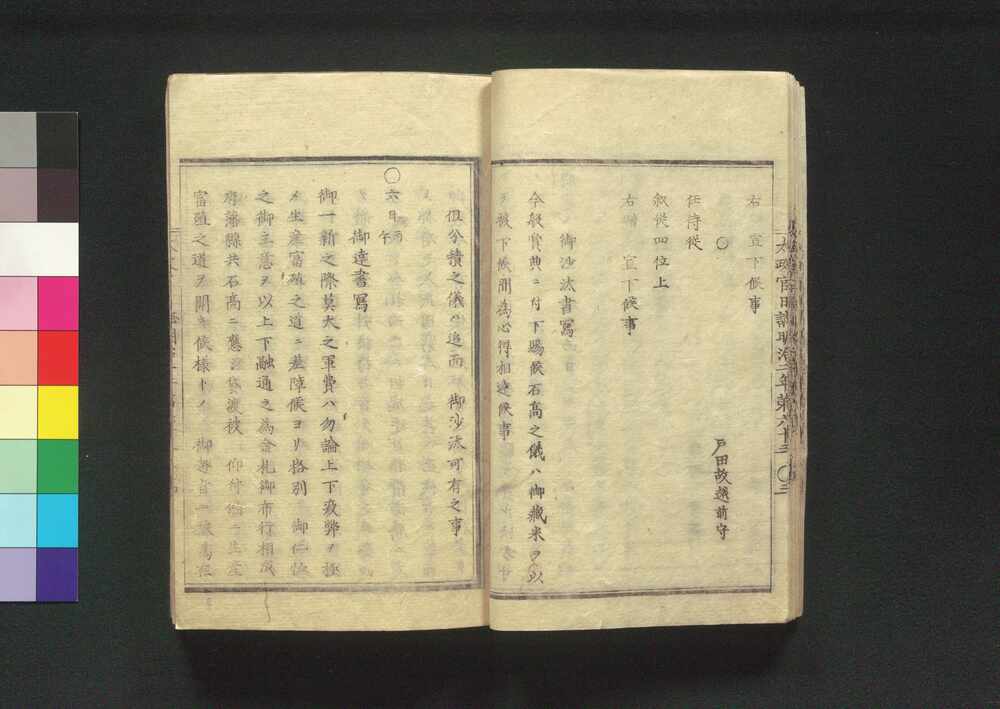 右 宣下候事
〇
戸田故越前守
任侍従
叙従四位上
右 宣下候事
御沙汰書寫
今般賞典ニ付下賜候石高之儀ハ御藏米ヲ以
被下候間為心得相達候事
但分積之儀ハ追而 御沙汰可有之事
〇六日 午
御達書寫
御一新之際莫大之軍費ハ勿論上下疲弊ノ極
生産富殖之道ニ差障候ヨリ格別 御仁恤
之御主意ヲ以上下融通之為金札御布行相成
府藩縣共石高ニ應 渡被 仰付 生産
富殖之道ヲ開キ候様トノ 御
太政官日誌明治二年第六十三 〇三